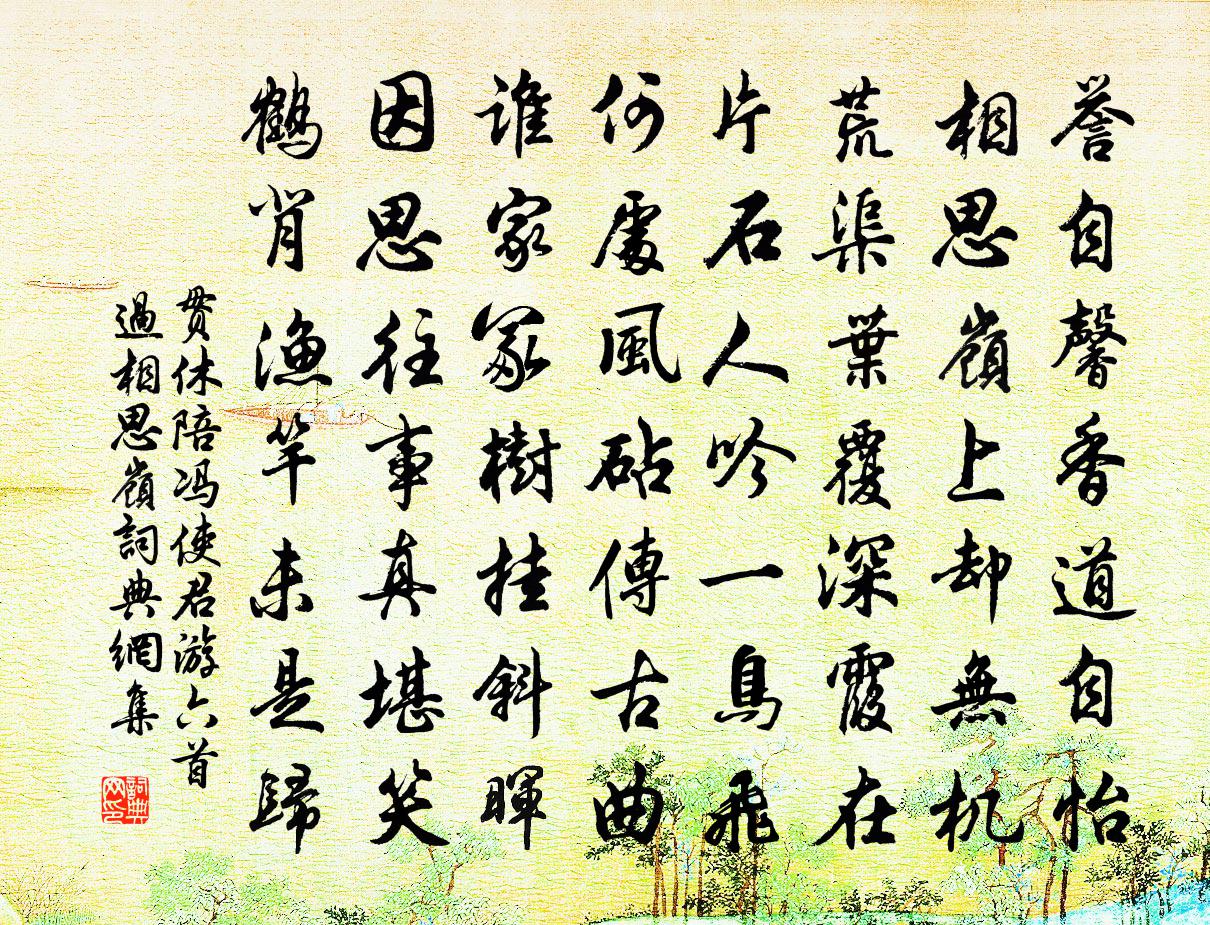 誉自馨香道自怡
相思嶺上却無机
荒渠葉覆深霞在
片石人吟一鳥飛
何處風砧傳古曲
谁家冢樹挂斜暉
因思往事真堪笑
鶴背漁竿未是歸
貫休陪冯使君游六首
過相思嶺詞典網集
詞典网印